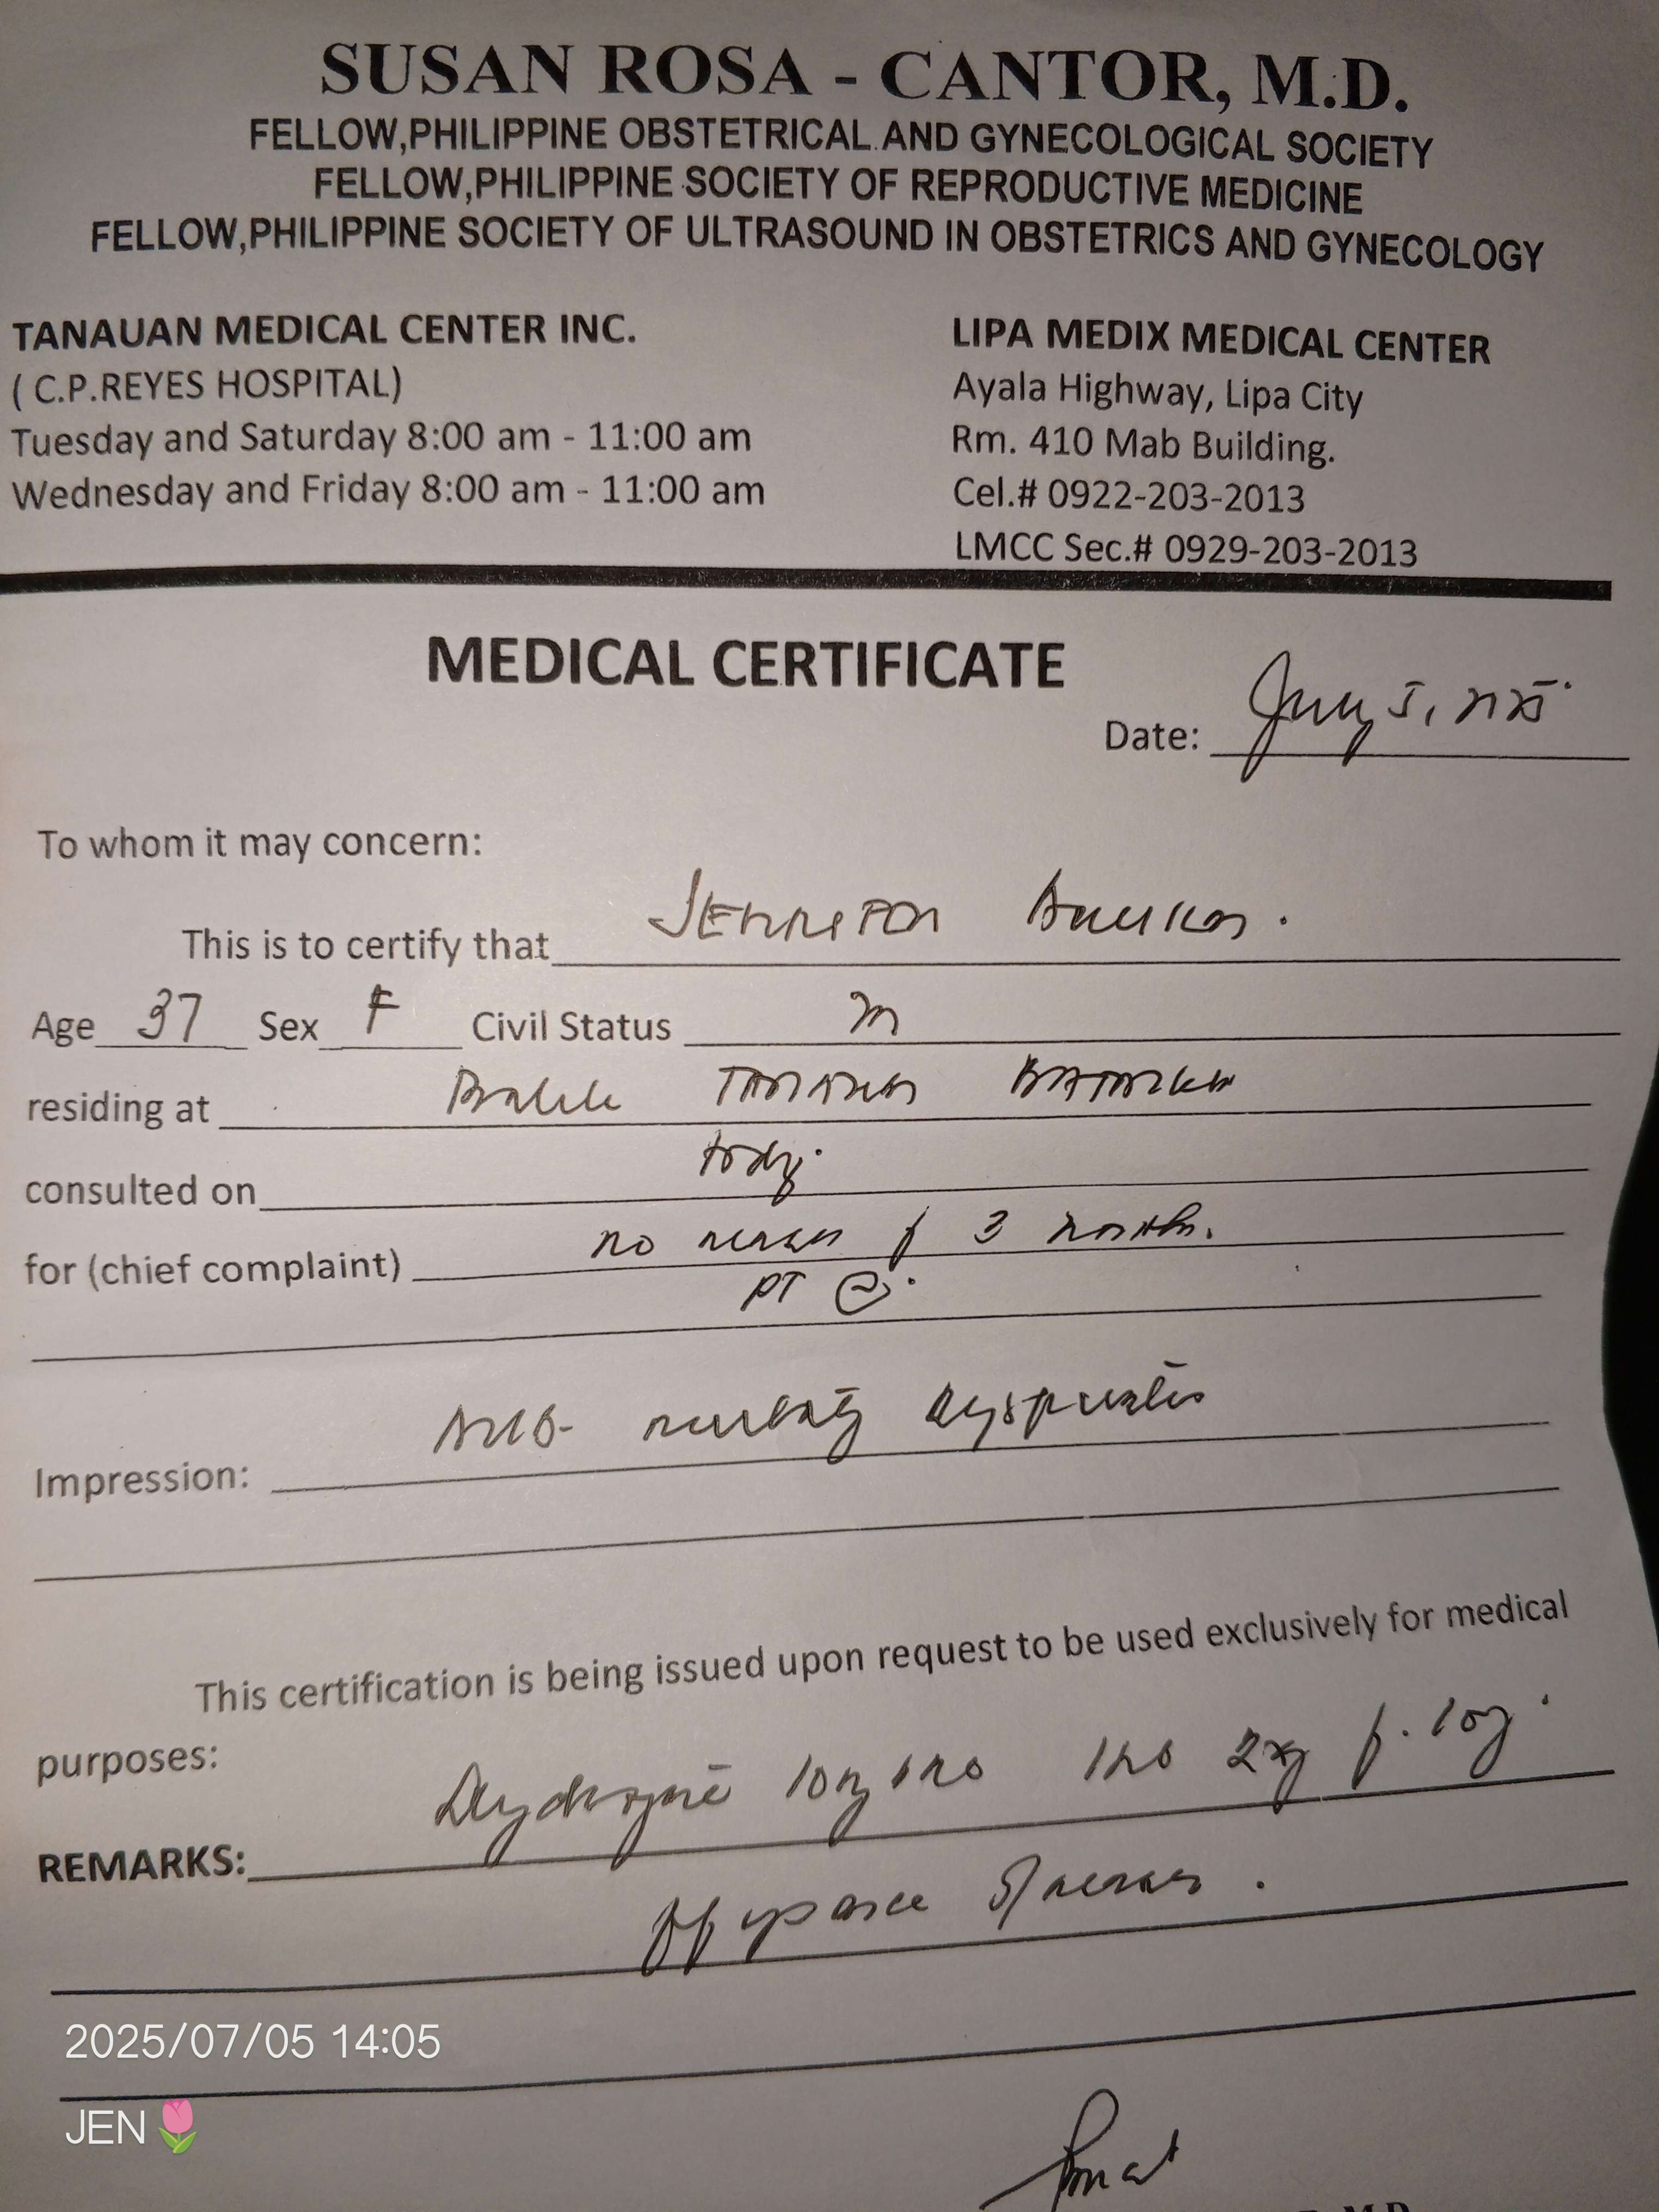 SUSAN ROSA - CANTOR, M.D.
FELLOW,PHILIPPINE OBSTETRICAL AND GYNECOLOGICAL SOCIETY
FELLOW,PHILIPPINE SOCIETY OF REPRODUCTIVE MEDICINE
FELLOW,PHILIPPINE SOCIETY OF ULTRASOUND IN OBSTETRICS AND GYNECOLOGY
TANAUAN MEDICAL CENTER INC.
( C.P.REYES HOSPITAL)
Tuesday and Saturday 8:00 am - 11:00 am
Wednesday and Friday 8:00 am - 11:00 am
LIPA MEDIX MEDICAL CENTER
Ayala Highway, Lipa City
Rm. 410 Mab Building.
Cel.# 0922-203-2013
LMCC Sec.# 0929-203-2013
MEDICAL CERTIFICATE
Date: July 5, 2025
To whom it may concern:
This is to certify that JENNIFER
Age 37 Sex F Civil Status M
residing at TANAUAN BATANGAS
consulted on today.
for (chief complaint) no menses for 3 months.
PT
Impression: AUB- ovulatory dysfunction
This certification is being issued upon request to be used exclusively for medical
purposes:
REMARKS: 10
menses.
2025/07/05 14:05
JEN🌷